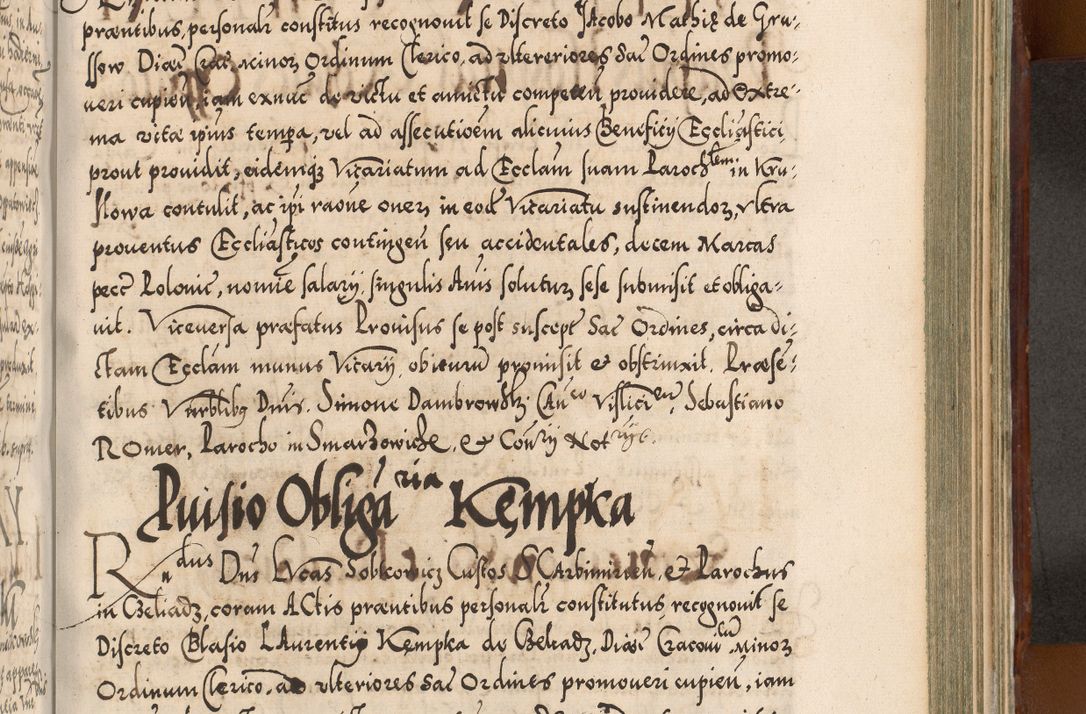 præntibus, personalr constitus recognouit se Discreto Jacobo Mathię de Gru-
ssow Diæc Crac Minoꝝ Ordinum Clerico, ad vltereriores Sac Ordines promo-
ueri cupien, iam exnuc de victu et amictu competen prouidere, ad Extre-
ma vitæ ipius tempa, vel ad assecutioem alicuius Beneficij Eccliastici,
prout prouidit, eidemqȝ Vicariatum ad Ecclam suam Parochlem in Kru-
slowa contulit, ac ipi raone oneꝝ in eod Vicariatu sustinendoꝝ, vltra
prouentus Eccliasticos contingen seu accidentales, decem Marcas
pecc Polonic, nomie salary, singulis Anis soluturꝝ sese submisit et obliga-
uit. Viceuersa præfatus Prouisus se post suscept Sac Ordines, circa di-
ctam Ecclam munus Vicarij obiturum promisit & obstrinxit. Præse-
tibus Vnrblibȝ Dnis. Simone Dambrowsky Canco Visliciem, Sebastiano
Romer, Parocho in Smarzowicze, & Consrij Notrijs.
Puisio Obligaria Kempka
Rndus Dns Lucas Sobkowicz Custos SCarbimirien, & Parochus
in Czeliadz, coram Actis præntibus personalr constitutus, recognouit se
Discreto Blasio Laurentij Kempka de Czeliadz, Diæc Cracouien Minoꝝ
Ordinum Clerico, ad vlteriores Sac Ordines promoueri cupien, iam